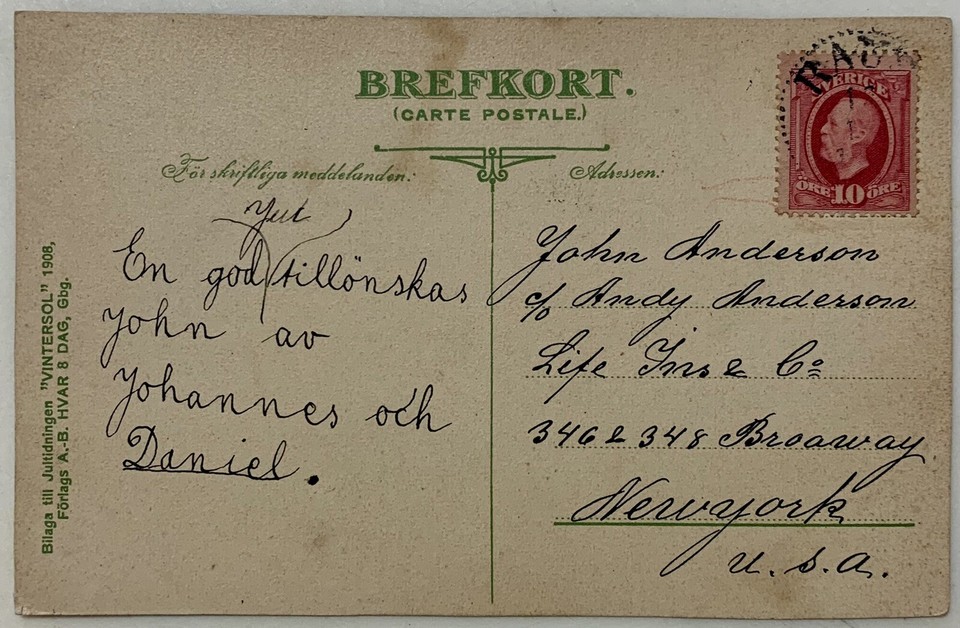 BREFKORT.
(CARTE POSTALE.)
För skriftliga meddelanden:
Jul
En god tillönskas
John av
Johannes och
Daniel.
Adressen:
SVERIGE
ÖRE 10 ÖRE
John Anderson
c/o Andy Anderson
Life Ins & Co
346 & 348 Broaway
Newyork
U.S.A.
Bilaga till Jultidningen "VINTERSOL" 1908,
Förlags A.-B. HVAR 8 DAG, Gbg.